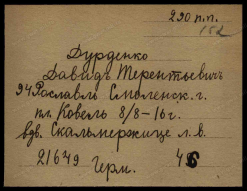 290 п.п.
152
Дурденко
Давидъ Терентьевичъ
94 Рославль Смоленск. г.
пл. Ковель 8/8-16 г.
вдв. Скальмержице л. в.
21649 Герм. 46